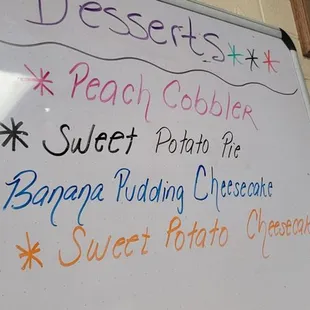 Desserts***
* Peach Cobbler
* Sweet Potato Pie
Banana Pudding Cheesecake
* Sweet Potato Cheesecak